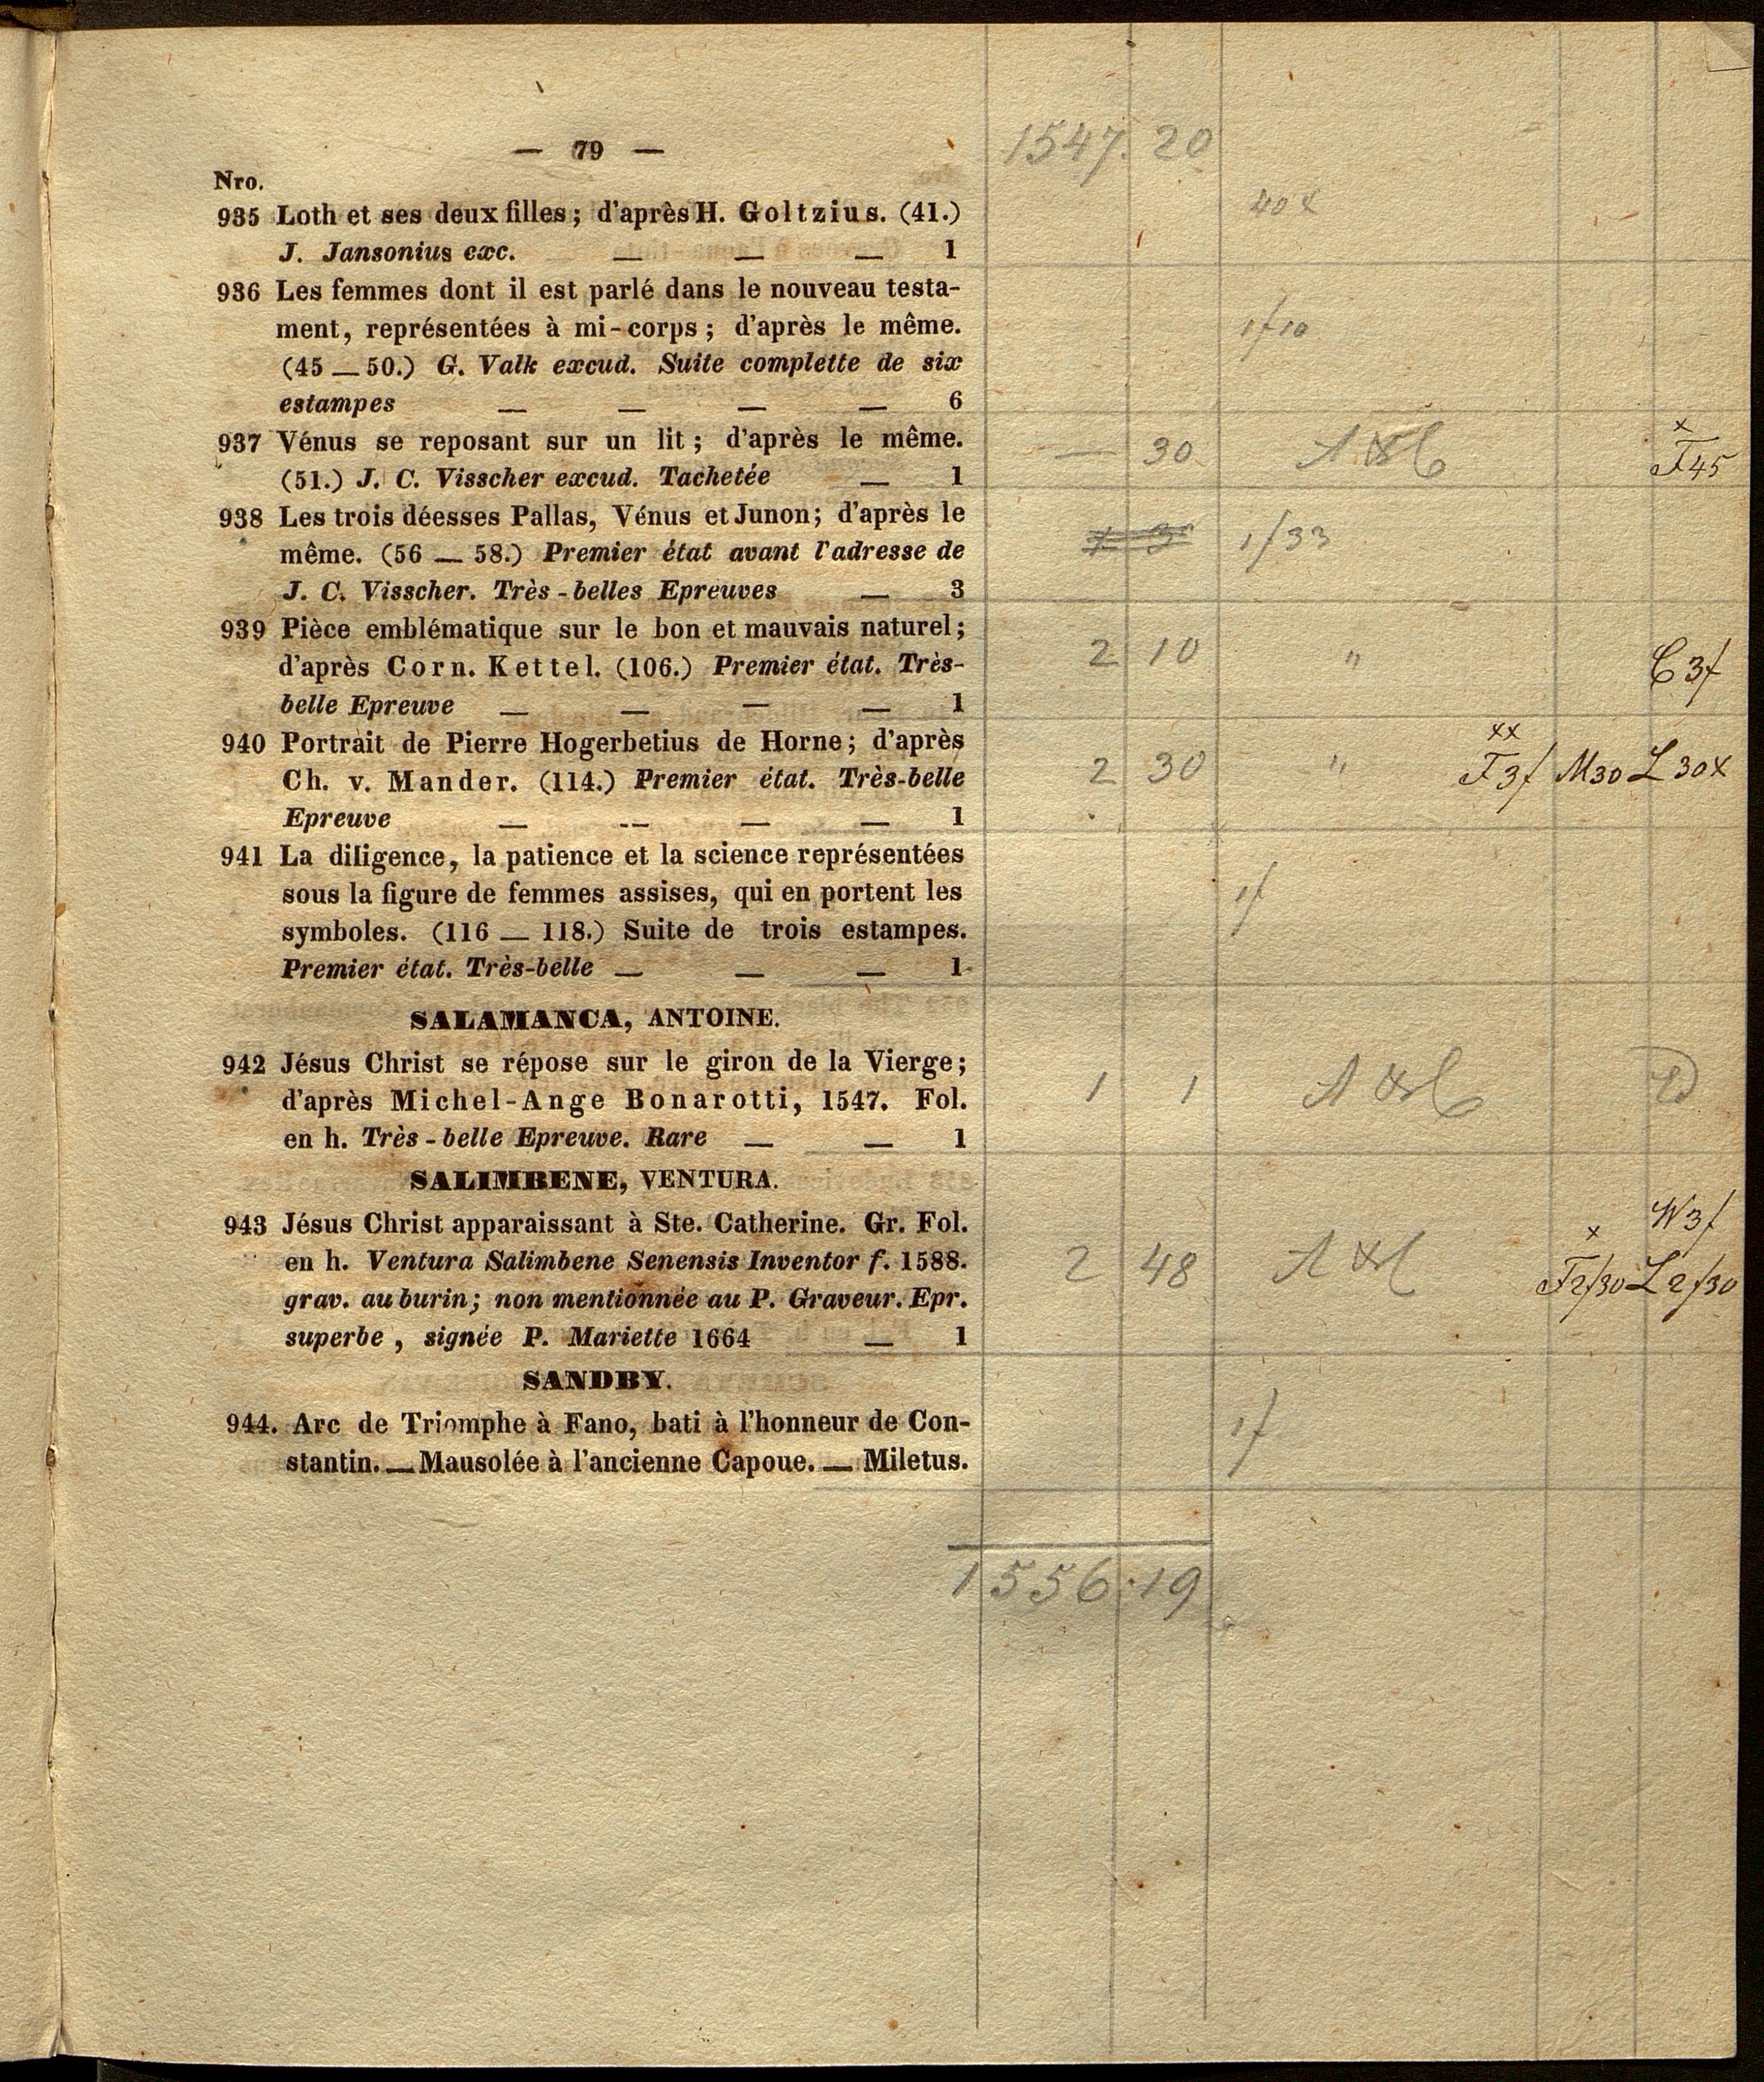 — 79 —
1547. 20
Nro.
935 Loth et ses deux filles; d'après H. Goltzius. (41.)
40 x
J. Jansonius exc. — — — 1
936 Les femmes dont il est parlé dans le nouveau testa-
ment, représentées à mi-corps; d'après le même.
1f10
(45 — 50.) G. Valk excud. Suite complette de six
estampes — — — — 6
937 Vénus se reposant sur un lit; d'après le même.
— 30
x
F45
(51.) J. C. Visscher excud. Tachetée — 1
938 Les trois déesses Pallas, Vénus et Junon; d'après le
même. (56 — 58.) Premier état avant l'adresse de
1/33
J. C. Visscher. Très-belles Epreuves — 3
939 Pièce emblématique sur le bon et mauvais naturel;
d'après Corn. Kettel. (106.) Premier état. Très-
2 10 " C 3f
belle Epreuve — — — — 1
940 Portrait de Pierre Hogerbetius de Horne; d'après
xx
Ch. v. Mander. (114.) Premier état. Très-belle
2 30 " F3f M30 L 30x
Epreuve — -- — — 1
941 La diligence, la patience et la science représentées
sous la figure de femmes assises, qui en portent les
1f
symboles. (116 — 118.) Suite de trois estampes.
Premier état. Très-belle — — — 1
SALAMANCA, ANTOINE.
942 Jésus Christ se répose sur le giron de la Vierge;
d'après Michel-Ange Bonarotti, 1547. Fol.
1 1
en h. Très-belle Epreuve. Rare — — 1
SALIMBENE, VENTURA.
943 Jésus Christ apparaissant à Ste. Catherine. Gr. Fol.
W3f
x
en h. Ventura Salimbene Senensis Inventor f. 1588.
2 48 F2f30 L 2f30
grav. au burin; non mentionnée au P. Graveur. Epr.
superbe, signée P. Mariette 1664 — 1
SANDBY.
944. Arc de Triomphe à Fano, bati à l'honneur de Con-
1f
stantin. — Mausolée à l'ancienne Capoue. — Miletus.
1556.19